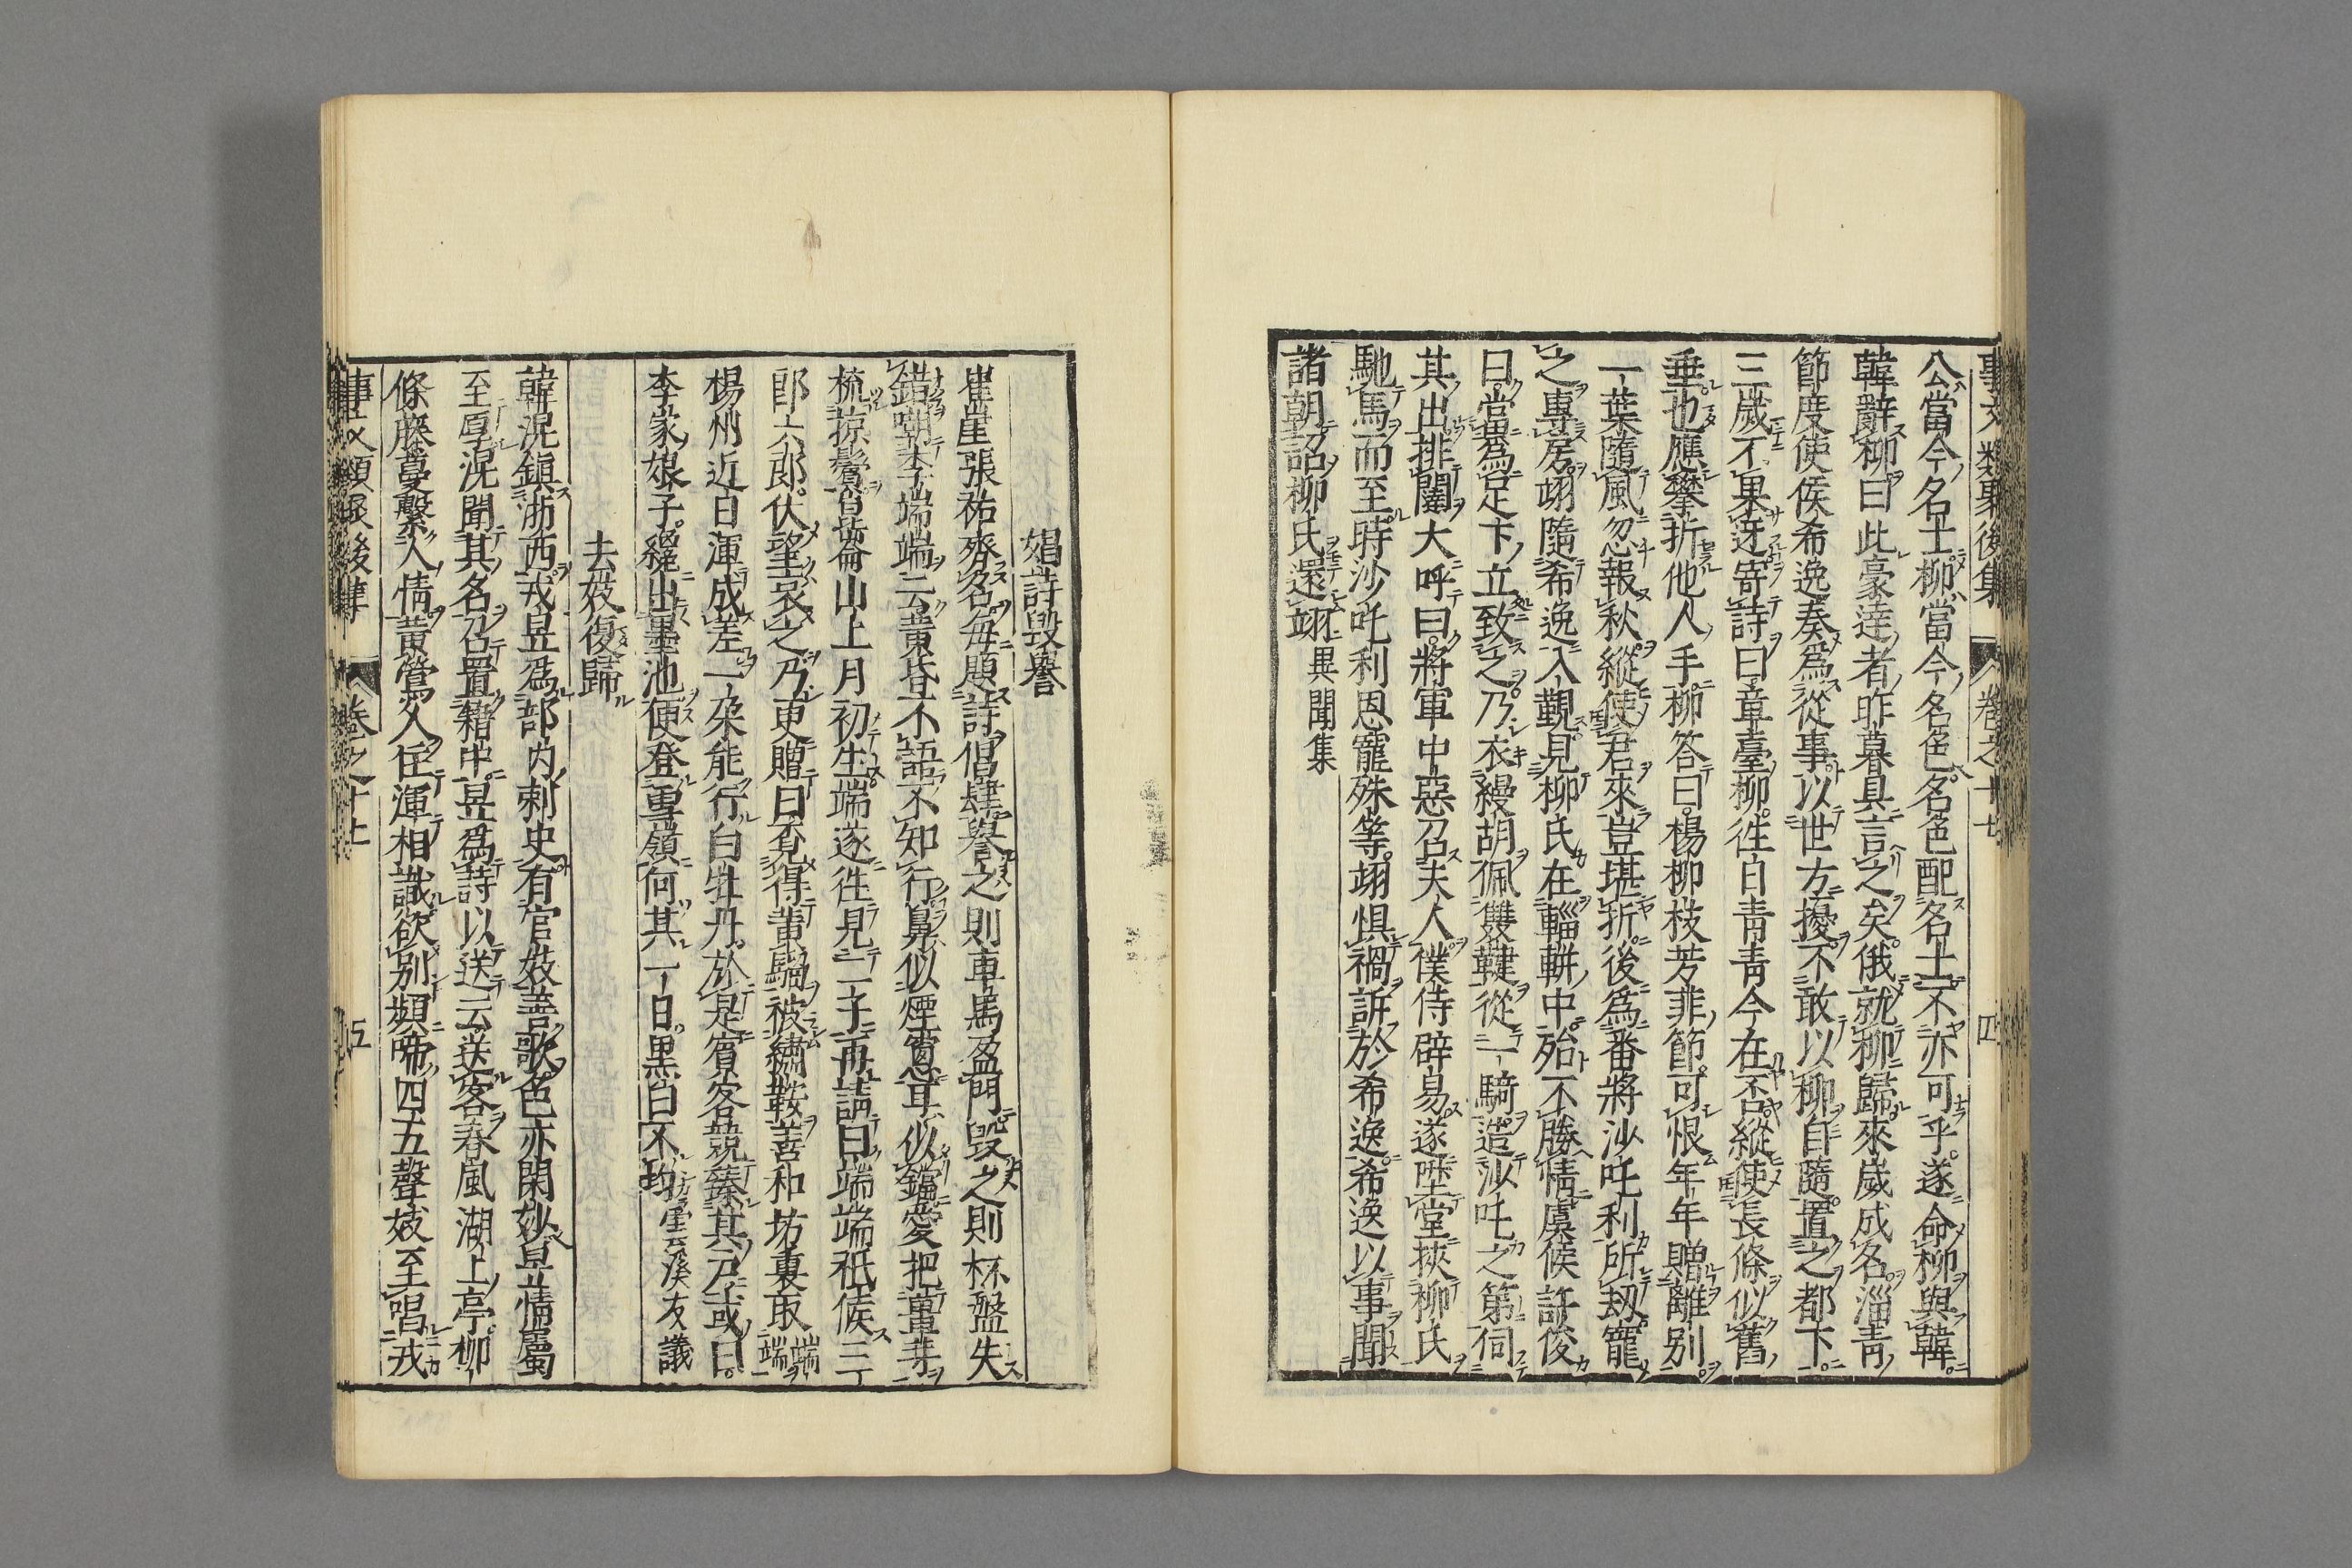 事文類聚後集 卷之十七 四
公當今名士柳當今名色名色配名士不亦可乎遂命柳與韓
韓辭柳曰此豪達者昨暮具言之矣俄就柳歸來歲成名淄青
節度使侯希逸奏爲從事以世方擾不敢以柳自隨置之都下
三歲不果迓寄詩曰章臺柳徃日青青今在否縱使長條似舊
垂也應攀折他人手柳答曰楊柳枝芳菲節可恨年年贈離别
一葉隨風忽報秋縱使君來豈堪折後爲番將沙吒利所刼寵
之專房翊隨希逸入覲見柳氏在輜軿中殆不勝情虞候許俊
曰當爲足下立致之乃衣縵胡佩雙鞬從一騎造沙吒之第伺
其出排闥大呼曰將軍中惡召夫人僕侍辟易遂陞堂挾柳氏
馳馬而至時沙吒利恩寵殊等翊懼禍訴於希逸希逸以事聞
諸朝詔柳氏還翊 異聞集
娼詩毀譽
崔崖張祐齊名每題詩倡肆譽之則車馬盈門毀之則杯盤失
錯嘲李端端云黄昏不語不知行鼻似煙窻耳似鐺愛把薑芽
梳掠鬢昆崙山上月初生端遂徃見二子再請曰端端祇候三
郎六郎伏望哀之乃更贈曰覓得黄騮被繡鞍善和坊裏取端端
楊州近日渾成差一朶能行白牡丹於是賓客競臻其戸或曰
李家娘子纔出墨池便登雪嶺何其一日黒白不均 雲溪友議
去妓復歸
韓滉鎮浙西戎昱爲部内刺史有官妓善歌色亦閑妙昱情屬
至厚滉聞其名召置籍中昱爲詩以送云送客春風湖上亭柳
條藤蔓繫人情黄鶯久住渾相識欲别頻啼四五聲妓至唱戎
事文類聚後集 卷之十七 五